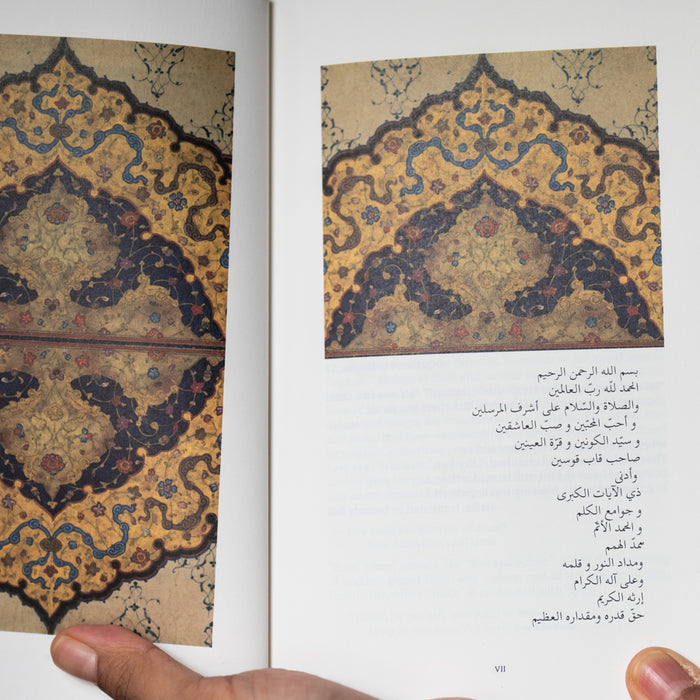 بسم الله الرحمن الرحيم
الحمد للّه ربّ العالمين
والصلاة والسّلام على أشرف المرسلين
و أحبّ المحبّين و صبّ العاشقين
و سيّد الكونين و قرّة العينين
صاحب قاب قوسين
وأدنى
ذي الآيات الكبرى
و جوامع الكلم
و الحمد الأتمّ
سمدّ الهمم
ومداد النور و قلمه
وعلى آله الكرام
إرثه الكريم
حقّ قدره ومقداره العظيم
VII